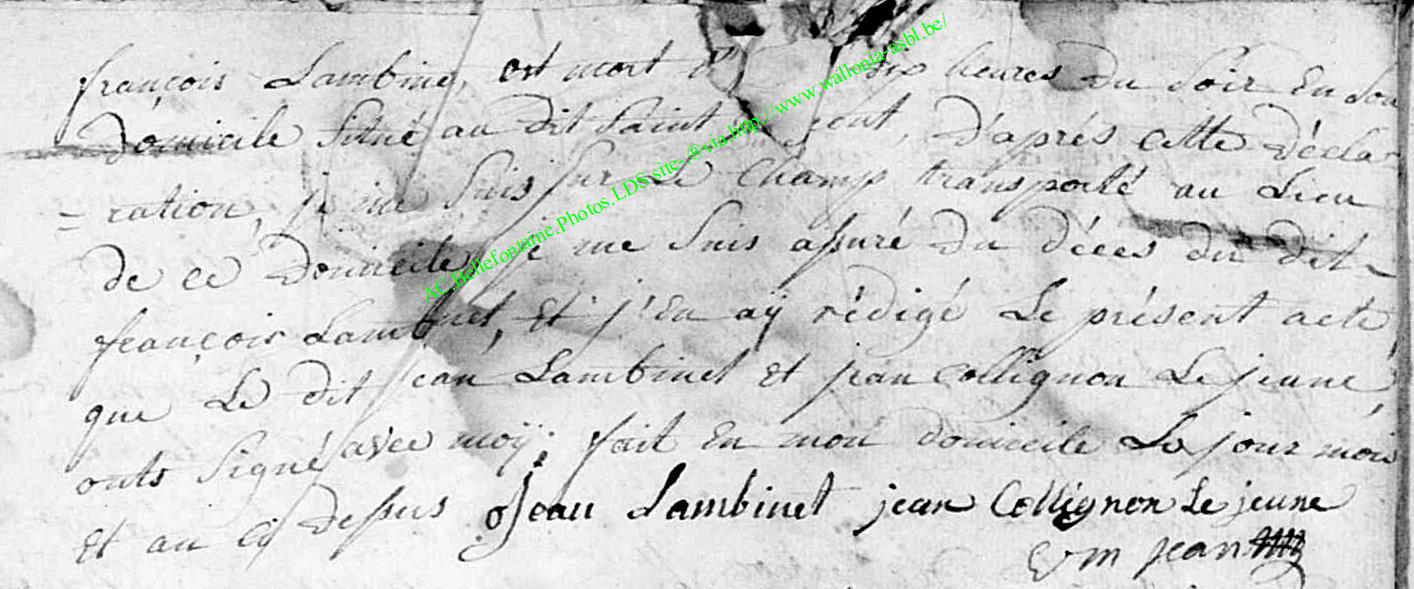 françois Lambinet, est mort dix heures du Soir En Son
Domicile Situé au dit Saint d'après cette Décla-
=ration, je me Suis Sur Le Champ transporté au Lieu
de ce Domicile, je me Suis assuré du décès du dit
françois Lambinet, Et j'En aÿ rédigé Le présent acte
que Le dit jean Lambinet et jean Collignon Le jeune,
onts Signé avec moÿ; fait En mon domicile Le jour mois
Et an cÿ dessus Jean Lambinet jean Collignon Le jeune
jean
AC.Bellefontaine.Photos.LDS.site-®via.http://www.wallonia-asbl.be/